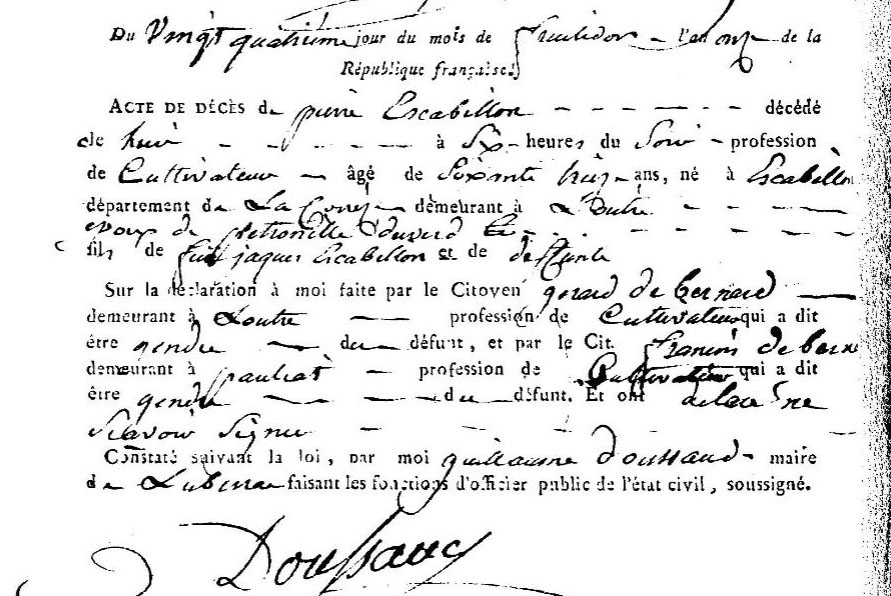 Du Vingt quatrième jour du mois de fructidor - l'an onze de la
République française.
ACTE DE DÉCÈS de pierre Escabillon - - - - - - décédé
de hier - - - - - à Six - heures du Soir - profession
de Cultivateur - âgé de Soixante treize - ans, né à Escabillon
département de La Corrèze demeurant à Loutre - - -
Epoux de petronille - - - -
fils de feu jaques Escabillon et de deffunte
Sur la déclaration à moi faite par le Citoyen gerard de bernard -
demeurant à Loutre - profession de Cultivateur qui a dit
être gendre - du - défunt, et par le Cit. françois de bernard
demeurant à pauliat - profession de Cultivateur qui a dit
être gendre - - - du - défunt. Et ont déclaré ne
Scavoir Signer - - - -
Constaté suivant la loi, par moi guillaume Doussaud - maire
de Lubersac faisant les fonctions d'officier public de l'état civil, soussigné.
Doussaud